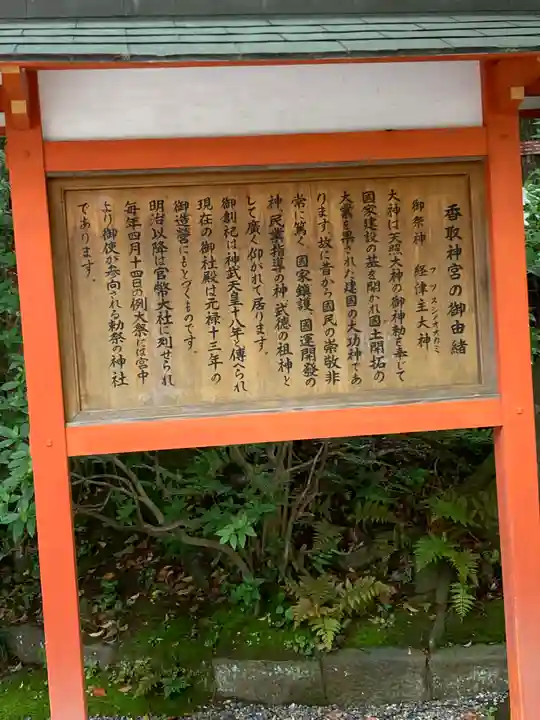 香取神宮の御由緒
御祭神　経津主大神
フツヌシノオオカミ
大神は天照大神の御神勅を奉じて
国家建設の基を開かれ国土開拓の
大業を果された建国の大功神であ
ります。故に昔から国民の崇敬非
常に篤く、國家鎮護、國運開發の
神、民業指導の神、武徳の祖神と
して廣く仰がれて居ります。
御創祀は神武天皇十八年と傳へられ
現在の御社殿は元禄十三年の
御造営にもとづくものです。
明治以降は官幣大社に列せられ
毎年四月十四日の例大祭には宮中
より御使が参向される勅祭の神社
であります。